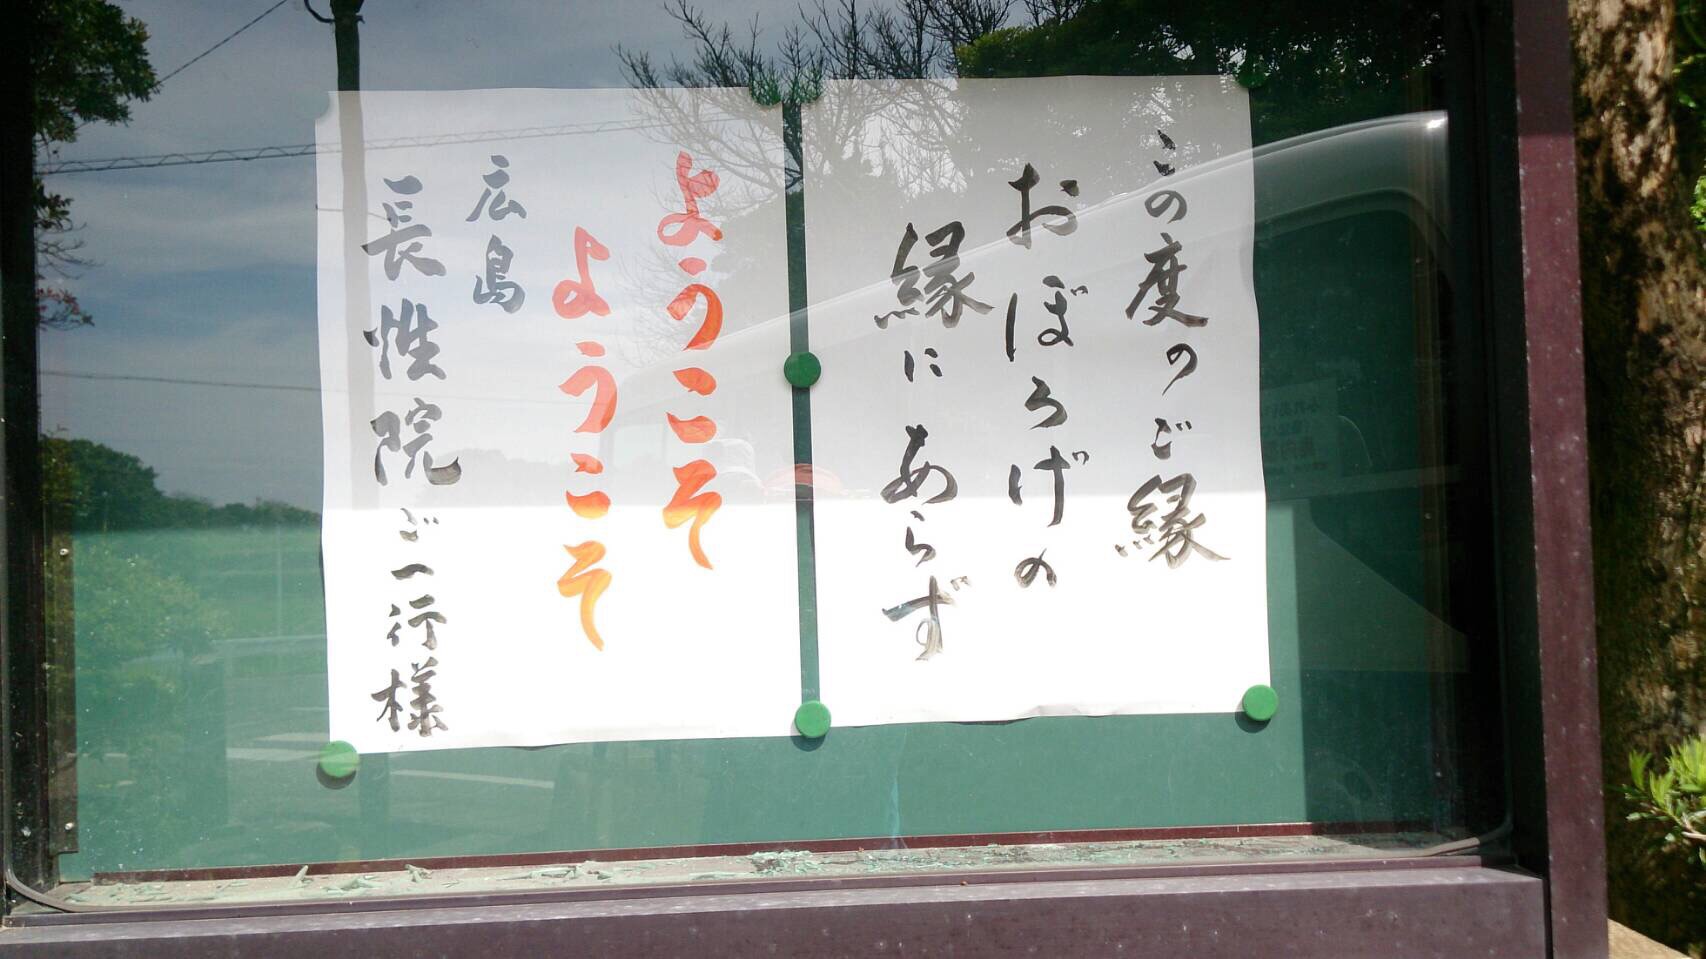 この度のご縁
おぼろげの
縁にあらず
ようこそ
ようこそ
広島
長性院ご一行様